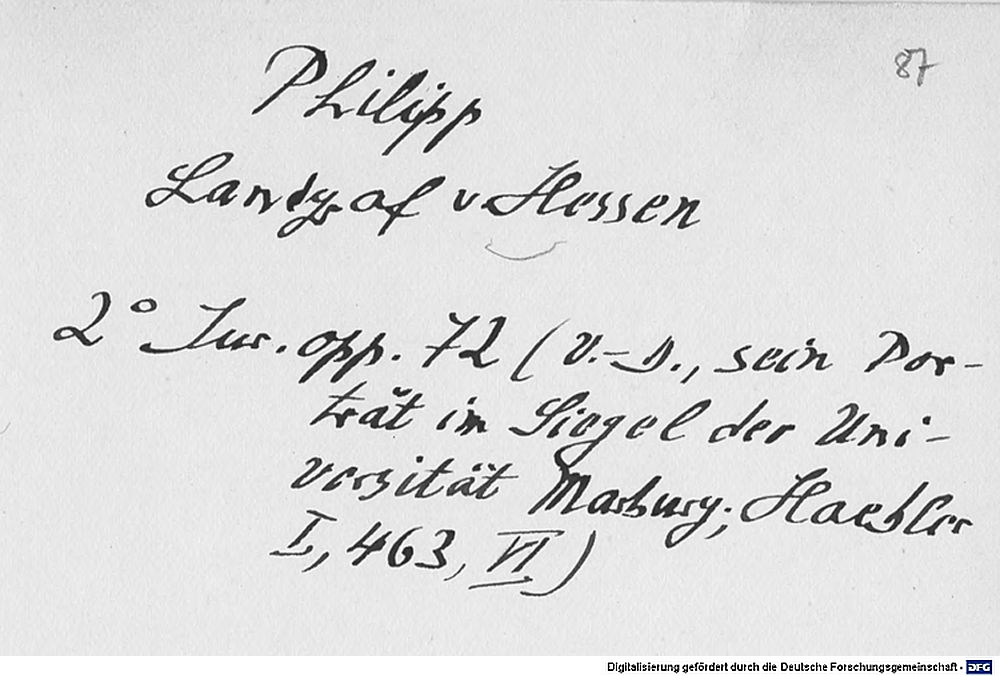 87
Philipp
Landgraf v. Hessen
2° Jur. opp. 72 (V.-D., sein Por-
trät im Siegel der Uni-
versität Marburg; Haebler
I, 463, VI)
Digitalisierung gefördert durch die Deutsche Forschungsgemeinschaft - DFG